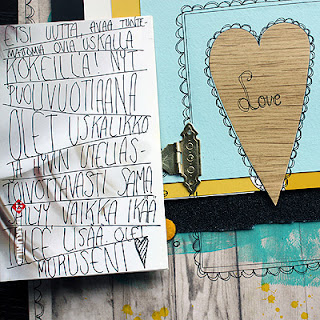 ETSI UUTTA, AVAA TUNTE-
MATTOMIA OVIA USKALLA
KOKEILLA! NYT
PUOLIVUOTIAANA
OLET USKALIKKO
JA AIVAN UTELIAS-
TOIVOTTAVASTI SAMA
SÄILYY VAIKKA IKÄÄ
TULEE LISÄÄ OLET
MURUSENI
Love